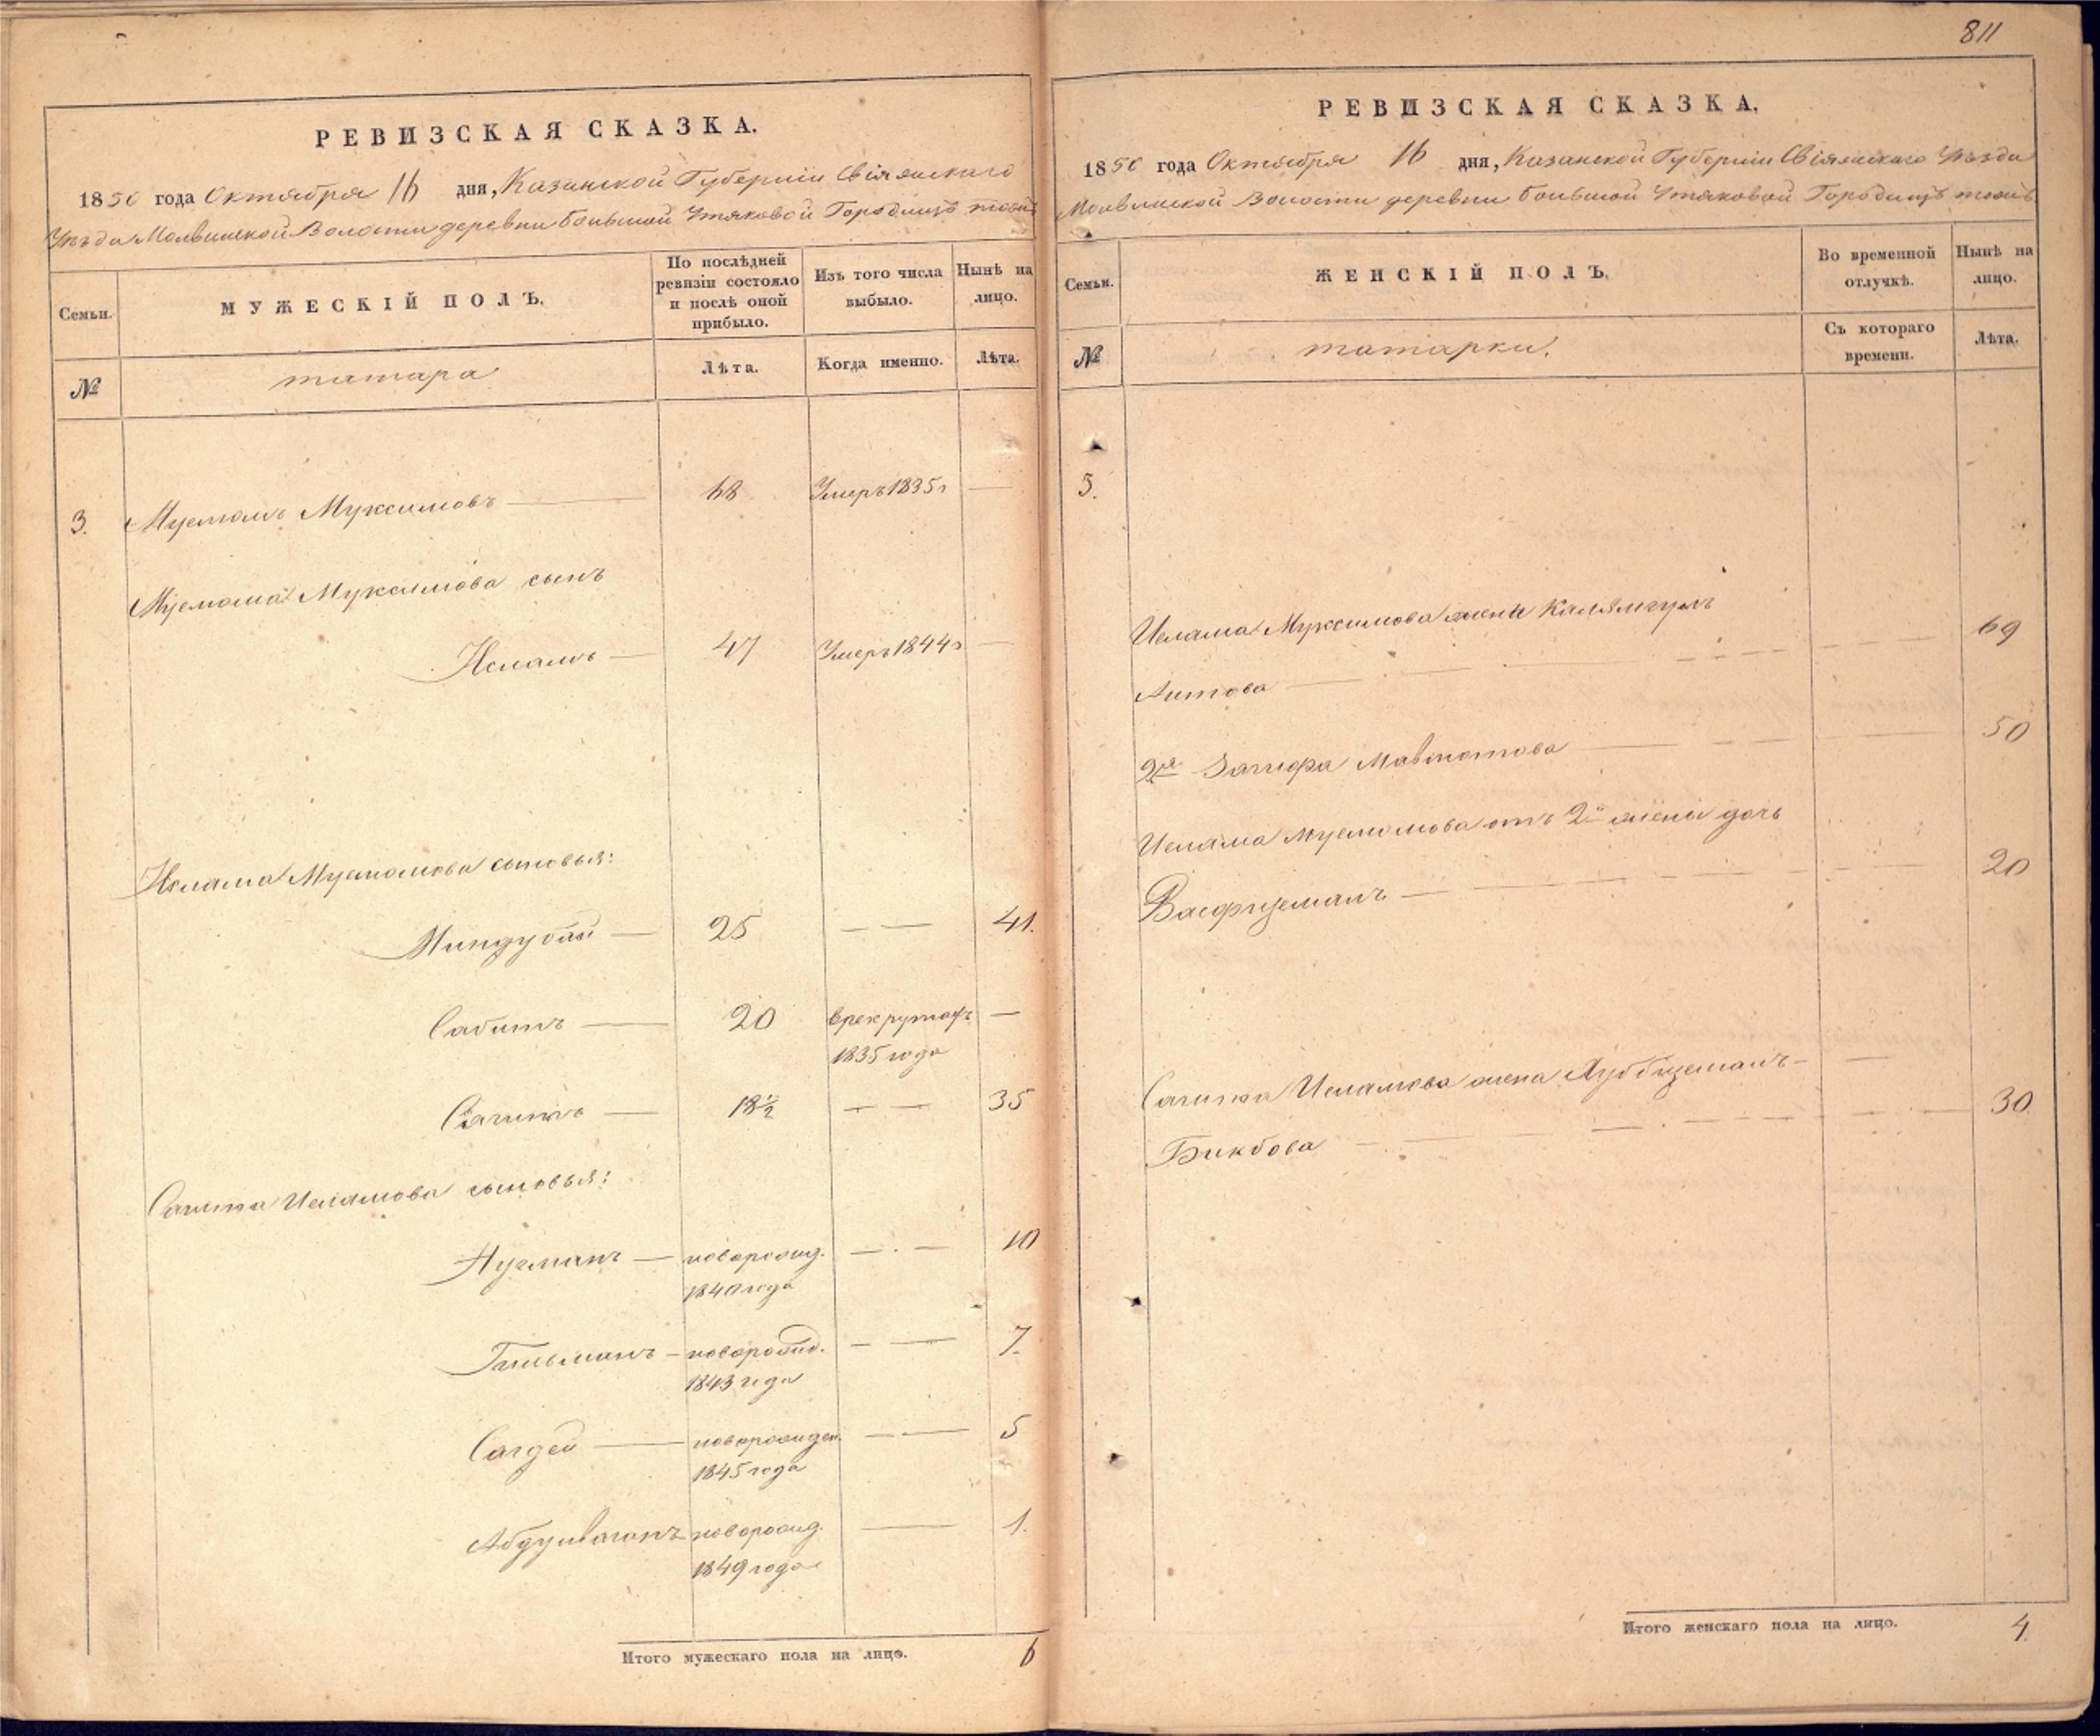 811
РЕВИЗСКАЯ СКАЗКА.
1850 года Октября 16 дня, Казанской Губерніи Свіяжскаго
Уѣзда Молвинской Волости деревни Большой Утяковой Городищъ тожъ
Семьи.
МУЖЕСКІЙ ПОЛЪ.
По послѣдней ревизіи состояло и послѣ оной прибыло.
Изъ того числа выбыло.
Нынѣ на лицо.
№
татара
Лѣта.
Когда именно.
Лѣта.
3. Муксимовъ — 68 Умеръ 1835 г —
Муксимова сынъ
Исламъ — 47 Умеръ 1844 г —
Ислама сыновья:
Миндубай — 25 — — 41.
Сабитъ — 20 в рекрутахъ —
1835 года
Сагитъ — 18½ — — 35
Сагита Исламова сыновья:
Нугманъ — новорожд. — . — 10
1840 года
Гильманъ — новорожд. — — 7.
1843 года
Сагдей — новорожден. — — 5
1845 года
новорожд. — 1.
1849 года
Итого мужескаго пола на лицо. 6
РЕВИЗСКАЯ СКАЗКА.
1850 года Октября 16 дня, Казанской Губерніи Свіяжскаго Уѣзда
Молвинской Волости деревни Большой Утяковой Городищъ тожъ
Семьи.
ЖЕНСКІЙ ПОЛЪ.
Во временной отлучкѣ.
Нынѣ на лицо.
№
татарки.
Съ котораго времени.
Лѣта.
3.
Ислама Муксимова жена
Аитова — 69
2я Загифа — 50
Ислама от 2й жены дочь
20
Сагита Исламова жена
Бикбова — 30.
Итого женскаго пола на лицо. 4.